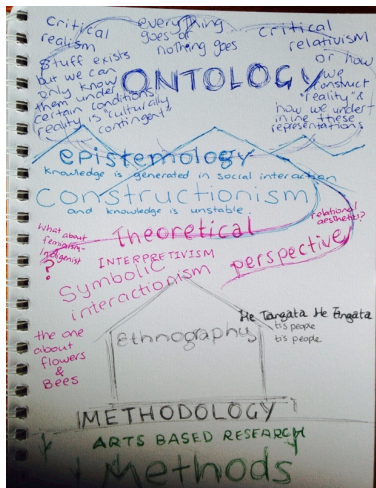 Critical
realism
stuff exists
but we can
only know
them under
certain conditions
reality is "culturally
contingent"
everything
goes or
nothing goes
critical
relativism
or how
we
construct
'reality' &
how we under
mine these
representations
ONTOLOGY
epistemology
knowledge is generated in social interaction
Constructionism
and knowledge is unstable
relational
aesthetics?
Theoretical
perspective
What about
feminism-
?
INTERPRETIVISM
Symbolic
interactionism
the one
about
flowers
&
Bees
Ethnography
He Tangata He Tangata
tis people
tis people
METHODOLOGY
ARTS BASED RESEARCH
Methods